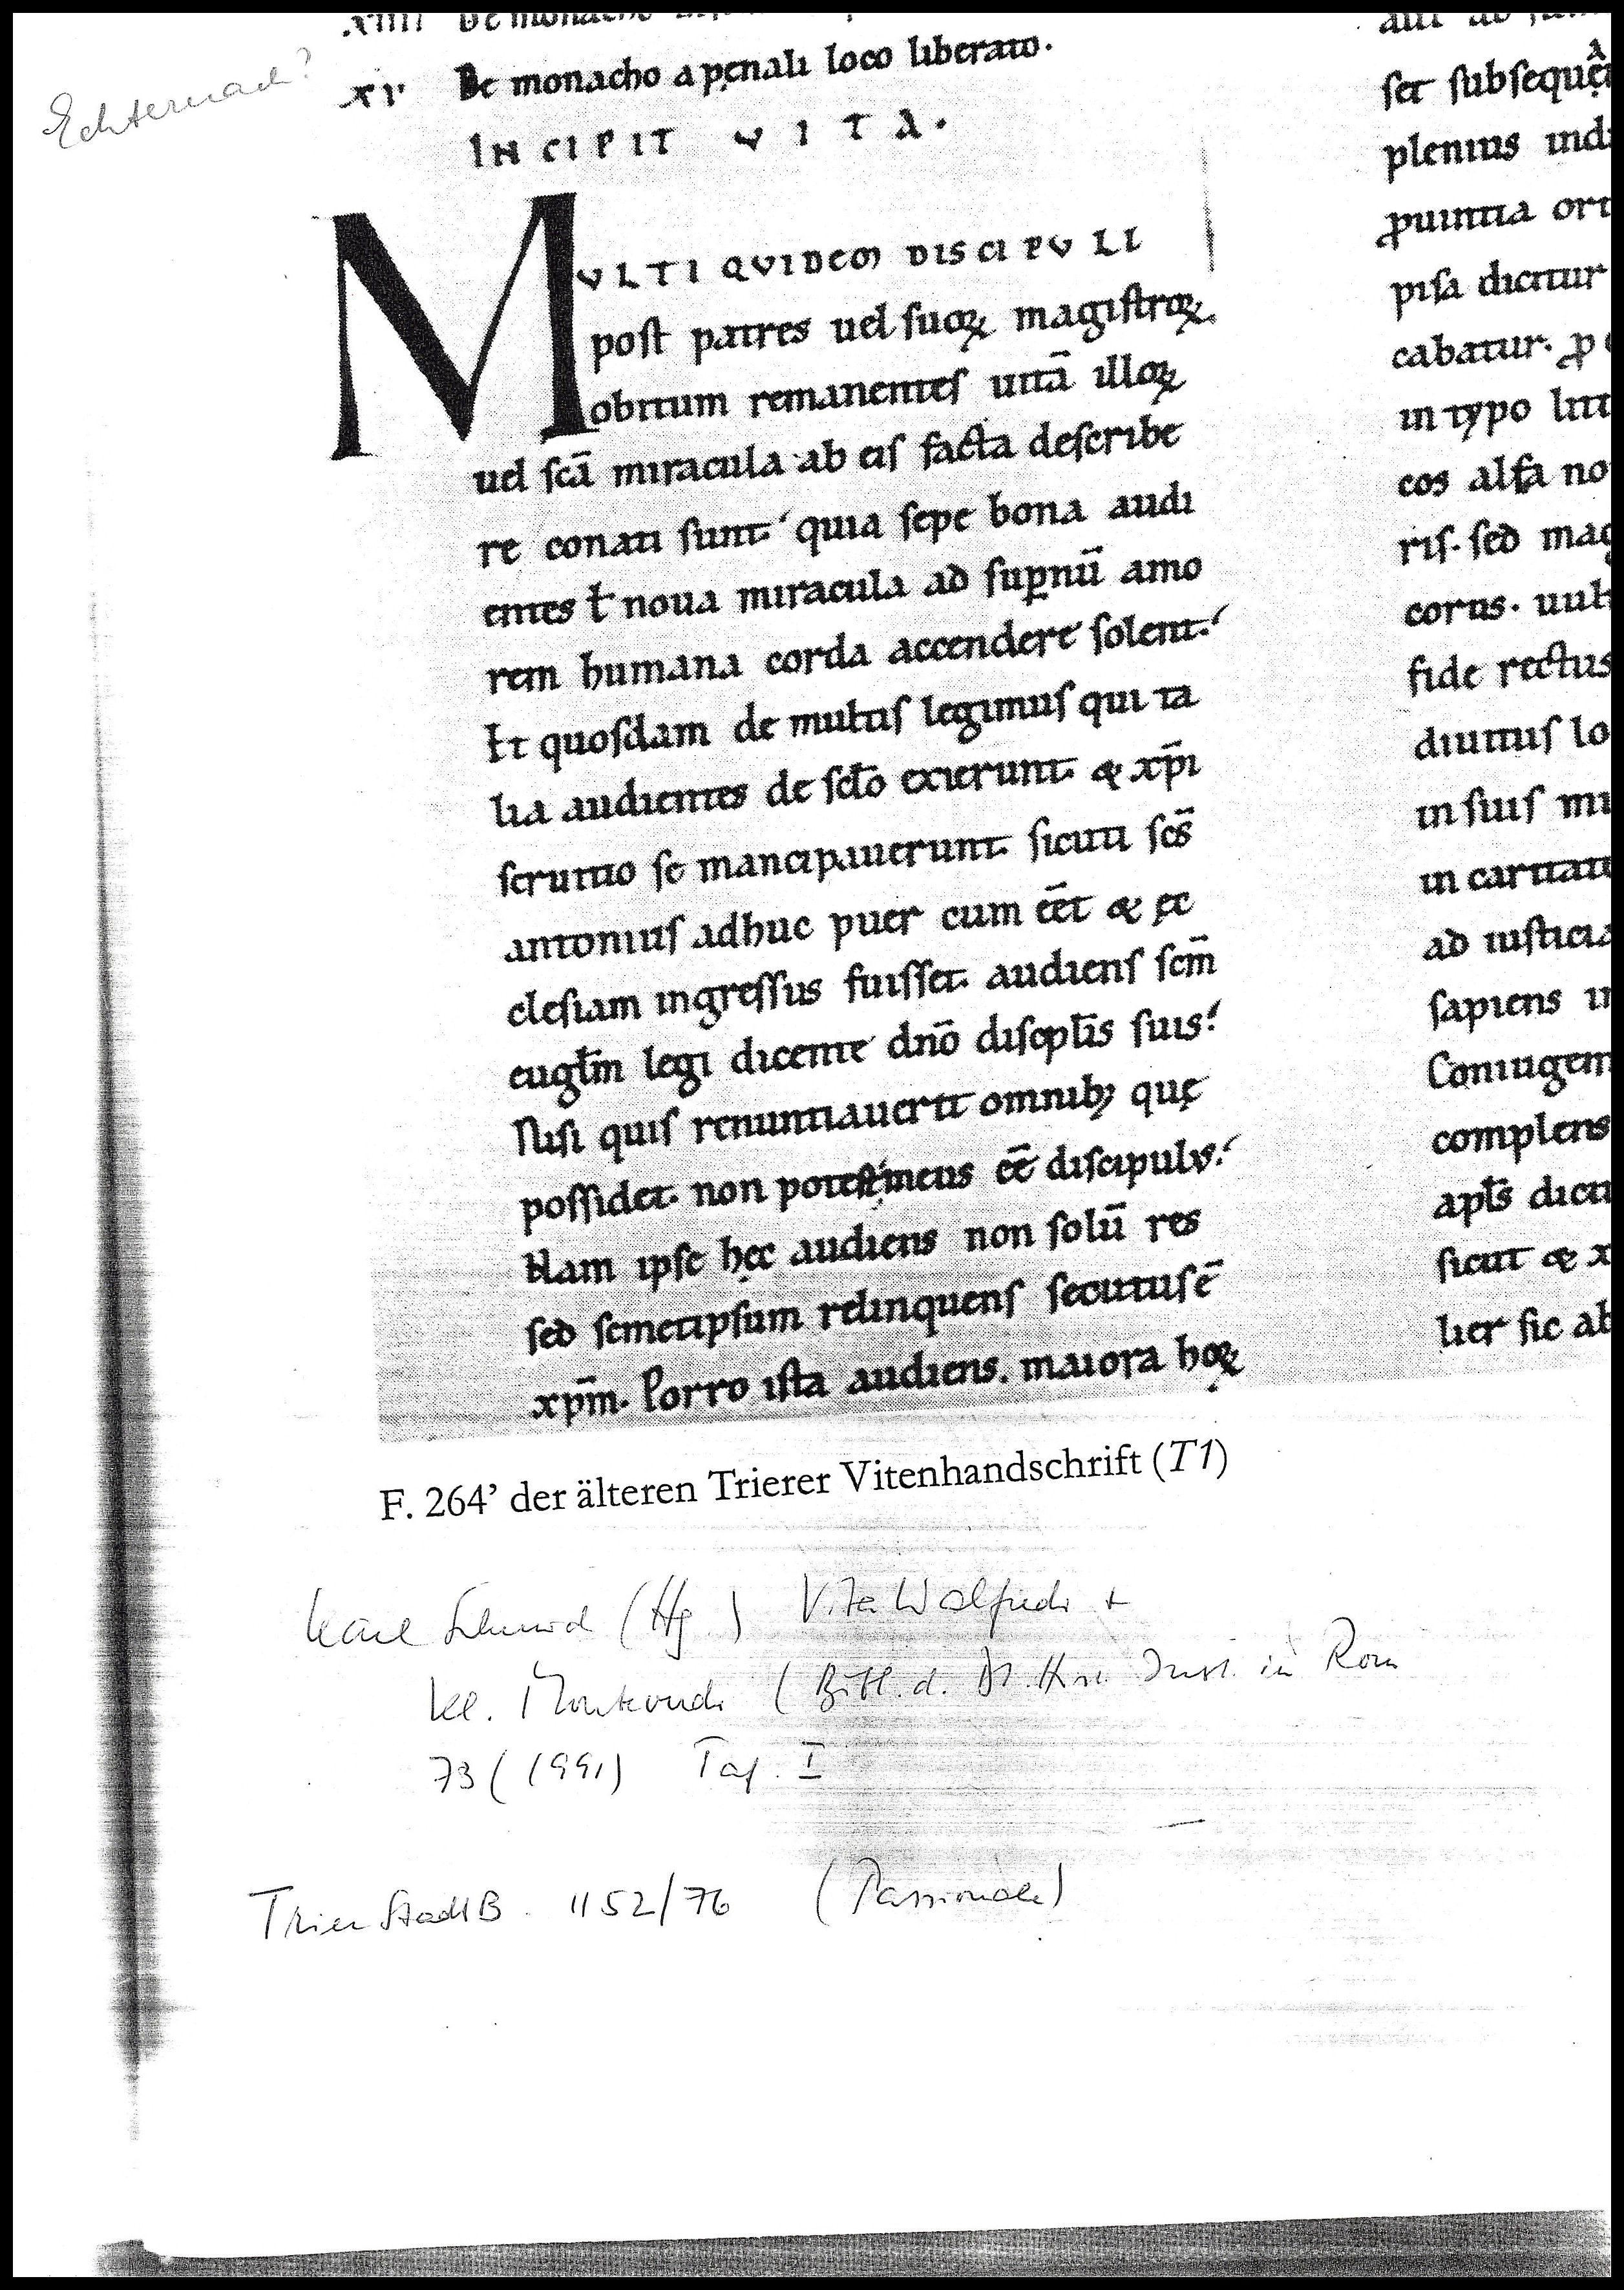 Echternach?
xv De monacho a penali loco liberato.
INCIPIT VITA.
MULTI QVIDEM DISCIPVLI
post patres uel suoꝝ magistroꝝ
obitum remanentes uitā illoꝝ
uel scā miracula ab eis facta describe
re conati sunt quia sepe bona audi
entes ł noua miracula ad suꝑnū amo
rem humana corda accendere solent.
Et quosdam de multis legimus qui ta
lia audientes de scło exierunt. & xp̄i
seruitio se mancipauerunt. sicuti scs̄
antonius adhuc puer cum eēt & ęc
clesiam ingressus fuisset. audiens scm̄
eugłm legi dicente dnō discipłis suis.
Nisi quis renuntiauerit omnibꝫ quę
possidet. non potest meus eē discipulus.
Nam ipse hęc audiens non solū res
sed semetipsum relinquens secutus ē
xp̄m. Porro ista audiens. maiora hoꝝ
set subsequen
plenius indi
ꝓuintia ort
pisa dicitur
cabatur. ꝓ
in typo litt
cos alfa no
ris. sed mag
corus. uult
fide rectus
diuitius lo
in suis mi
in caritate
ad iusticia
sapiens in
Coniugem
complens
apłs dict
sicut & x
lier sic ab
F. 264’ der älteren Trierer Vitenhandschrift (T1)
Karl Schmid (Hg.) Vita Walfredi +
Kl. Monteverdi (Bibl. d. Dt. Hist. Inst. in Rom
73 (1991) Taf. I
Trier StadtB. 1152/76 (Passionale)